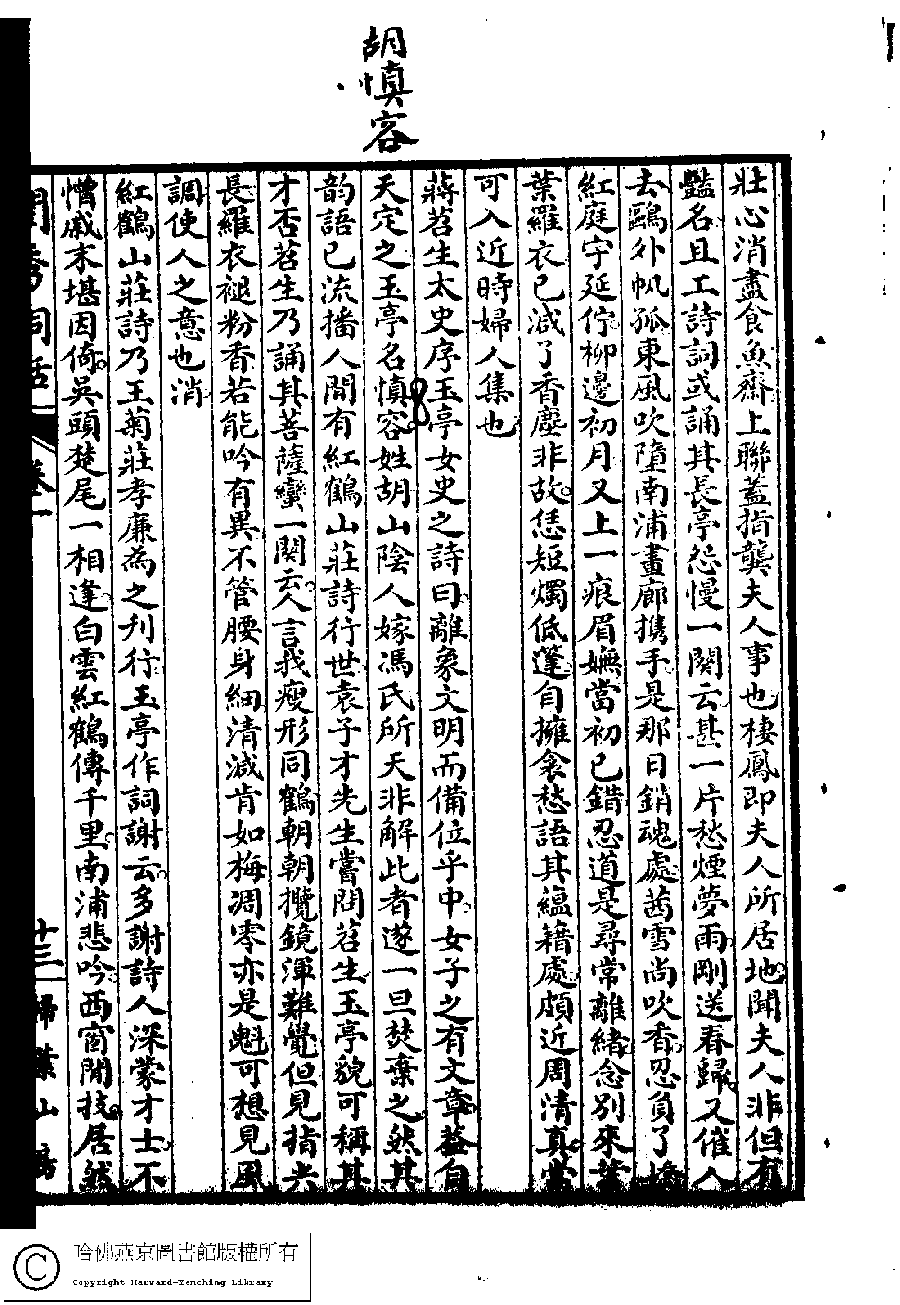 胡慎容
壯心消盡食魚齋上聯蓋指龔夫人事也棲鳳即夫人所居地聞夫人非但有
豔名且工詩詞或誦其長亭怨慢一闋云甚一片愁煙夢雨剛送春歸又催人
去鷗外帆孤東風吹墮南浦畫廊攜手是那日銷魂處茜雪尚吹香忍負了
紅庭宇延佇柳邊初月又上一痕眉嫵當初已錯忍道是尋常離緒念別來葉
葉羅衣已減了香塵非故恁短燭低篷自擁衾愁語其縕籍處頗近周清真當
可入近時婦人集也
蔣苕生太史序玉亭女史之詩曰離象文明而備位乎中女子之有文章蓋自
天定之玉亭名慎容姓胡山陰人嫁馮氏所天非解此者遂一旦焚棄之然其
韵語已流播人間有紅鶴山莊詩行世袁子才先生嘗問苕生玉亭貌可稱其
才否苕生乃誦其菩薩蠻一闋云人言我瘦形同鶴朝朝攬鏡渾難覺但見指尖
長羅衣褪粉香若能吟有異不管腰身細清減肯如梅凋零亦是魁可想見風
調使人之意也消
紅鶴山莊詩乃王菊莊孝廉為之刋行玉亭作詞謝云多謝詩人深蒙才士不
憎戚末堪因倚吳頭楚尾一相逢白雲紅鶴傳千里南浦悲吟西窗閒技居然
閨秀詞話 卷一 十三 掃葉山房
哈佛燕京圖書館版權所有
Copyright Harvard-Yenching Library